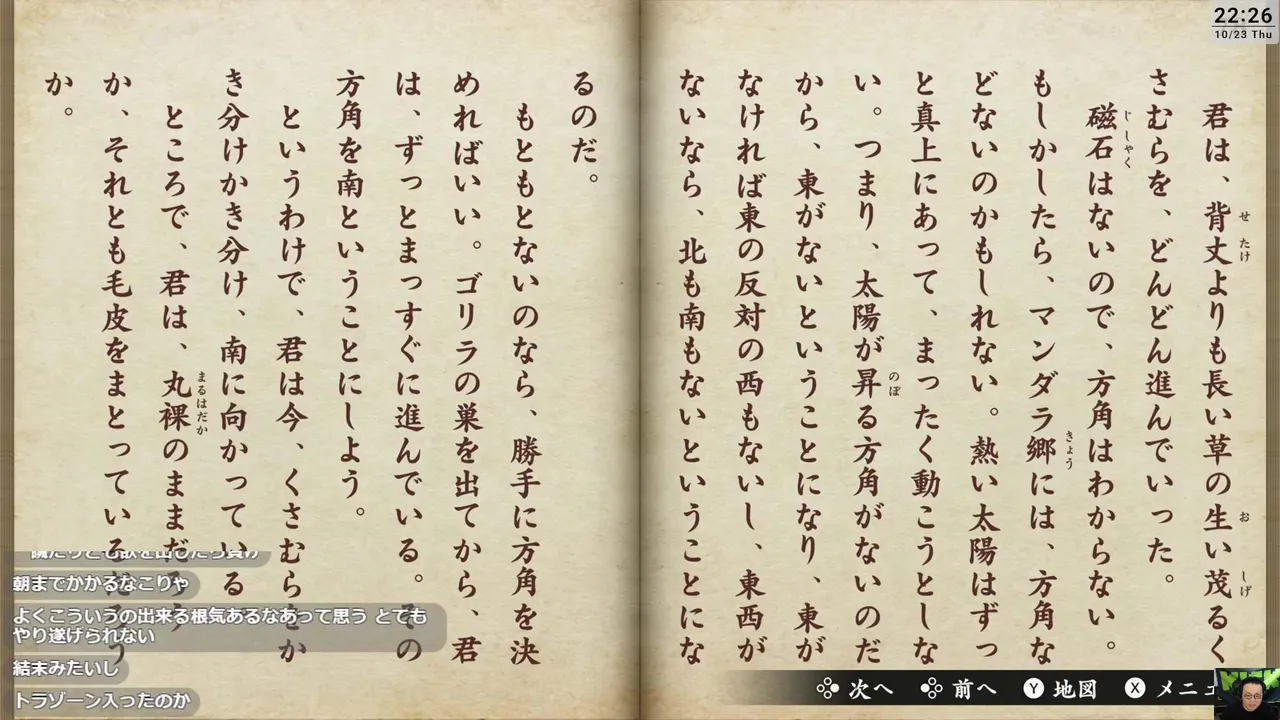 22:26
10/23 Thu
君は、背丈よりも長い草の生い茂るく
さむらを、どんどん進んでいった。
磁石はないので、方角はわからない。
もしかしたら、マンダラ郷には、方角な
どないのかもしれない。熱い太陽はずっ
と真上にあって、まったく動こうとしな
い。つまり、太陽が昇る方角がないのだ
から、東がないということになり、東が
なければ東の反対の西もないし、東西が
ないなら、北も南もないということにな
るのだ。
もともとないのなら、勝手に方角を決
めればいい。ゴリラの巣を出てから、君
は、ずっとまっすぐに進んでいる。その
方角を南ということにしよう。
というわけで、君は今、くさむらをか
き分けかき分け、南に向かっている
ところで、君は、丸裸のままだろう
か、それとも毛皮をまとっているだろう
か。
せたけ
おしげ
じしゃく
きょう
のぼ
まるはだか
朝までかかるなこりゃ
よくこういうの出来る根気あるなあって思う とても
やり遂げられない
結末みたいし
トラゾーン入ったのか
次へ 前へ Y 地図 X メニュ